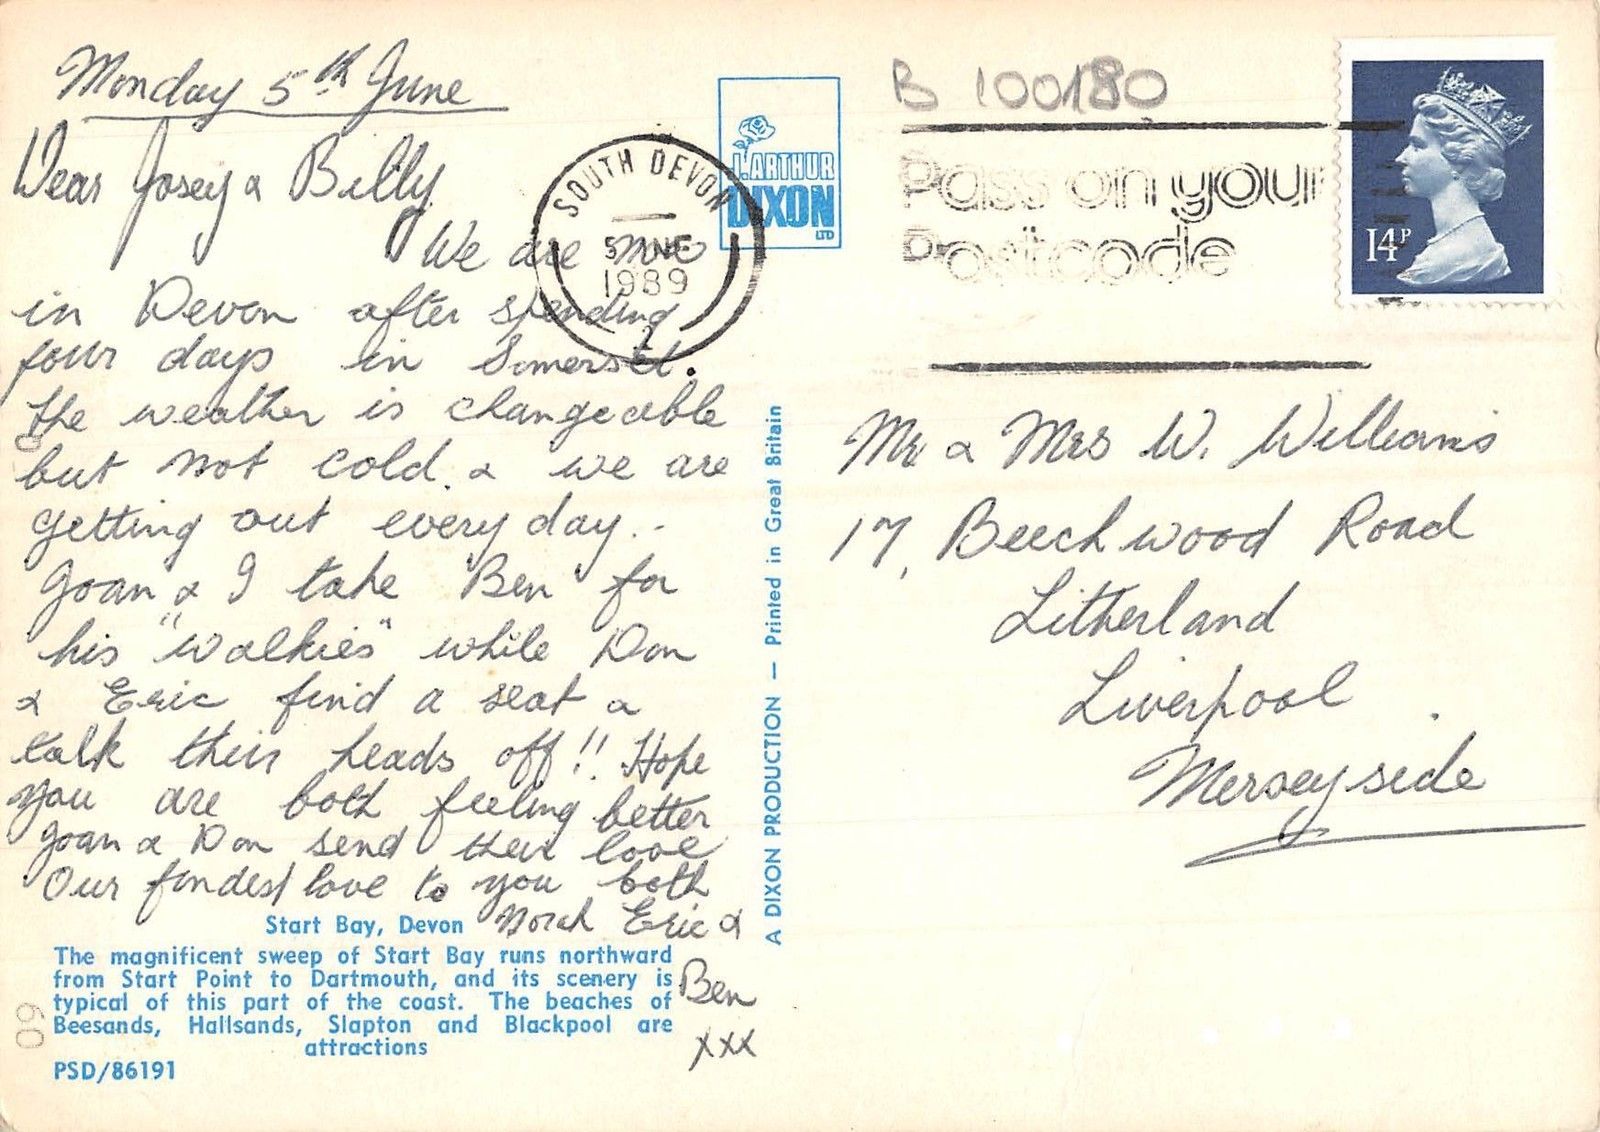 Monday 5th June
Dear Josey & Billy
We are now
in Devon after spending
four days in Somerset.
the weather is changeable
but not cold. & we are
getting out every day..
Joan & I take Ben for
his "walkies" while Don
& Eric find a seat &
talk their heads off!! Hope
you are both feeling better
Joan & Don send their love
Our fondest love to you both
Norah Eric &
Ben
xxx
Start Bay, Devon
The magnificent sweep of Start Bay runs northward
from Start Point to Dartmouth, and its scenery is
typical of this part of the coast. The beaches of
Beesands, Hallsands, Slapton and Blackpool are
attractions
PSD/86191
60
SOUTH DEVON
5 JUNE
1989
2
J. ARTHUR
DIXON
LTD
A DIXON PRODUCTION — Printed in Great Britain
B 100180
Pass on your
Postcode
14P
Mr & Mrs W. Williams
17, Beechwood Road
Litherland
Liverpool
Merseyside